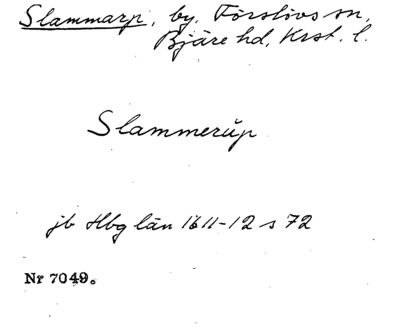 Slammarp, by, Förslövs sn,
Bjäre hd, Krst. l.
Slammerup
jb Hbg län 1611-12 s 72
Nr 7049.